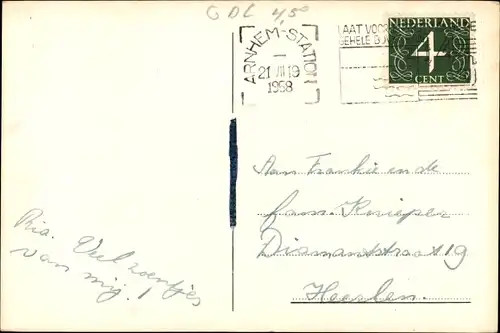 GDL 4,50
ARNHEM-STATION
21 VII 19
1958
LAAT VOOR
GEHELE
NEDERLAND
4
CENT
Aan Frankie en de
fam. Knieper
Diamantstraat 19
Heerlen.
Ria. Veel zoentjes
van mij!